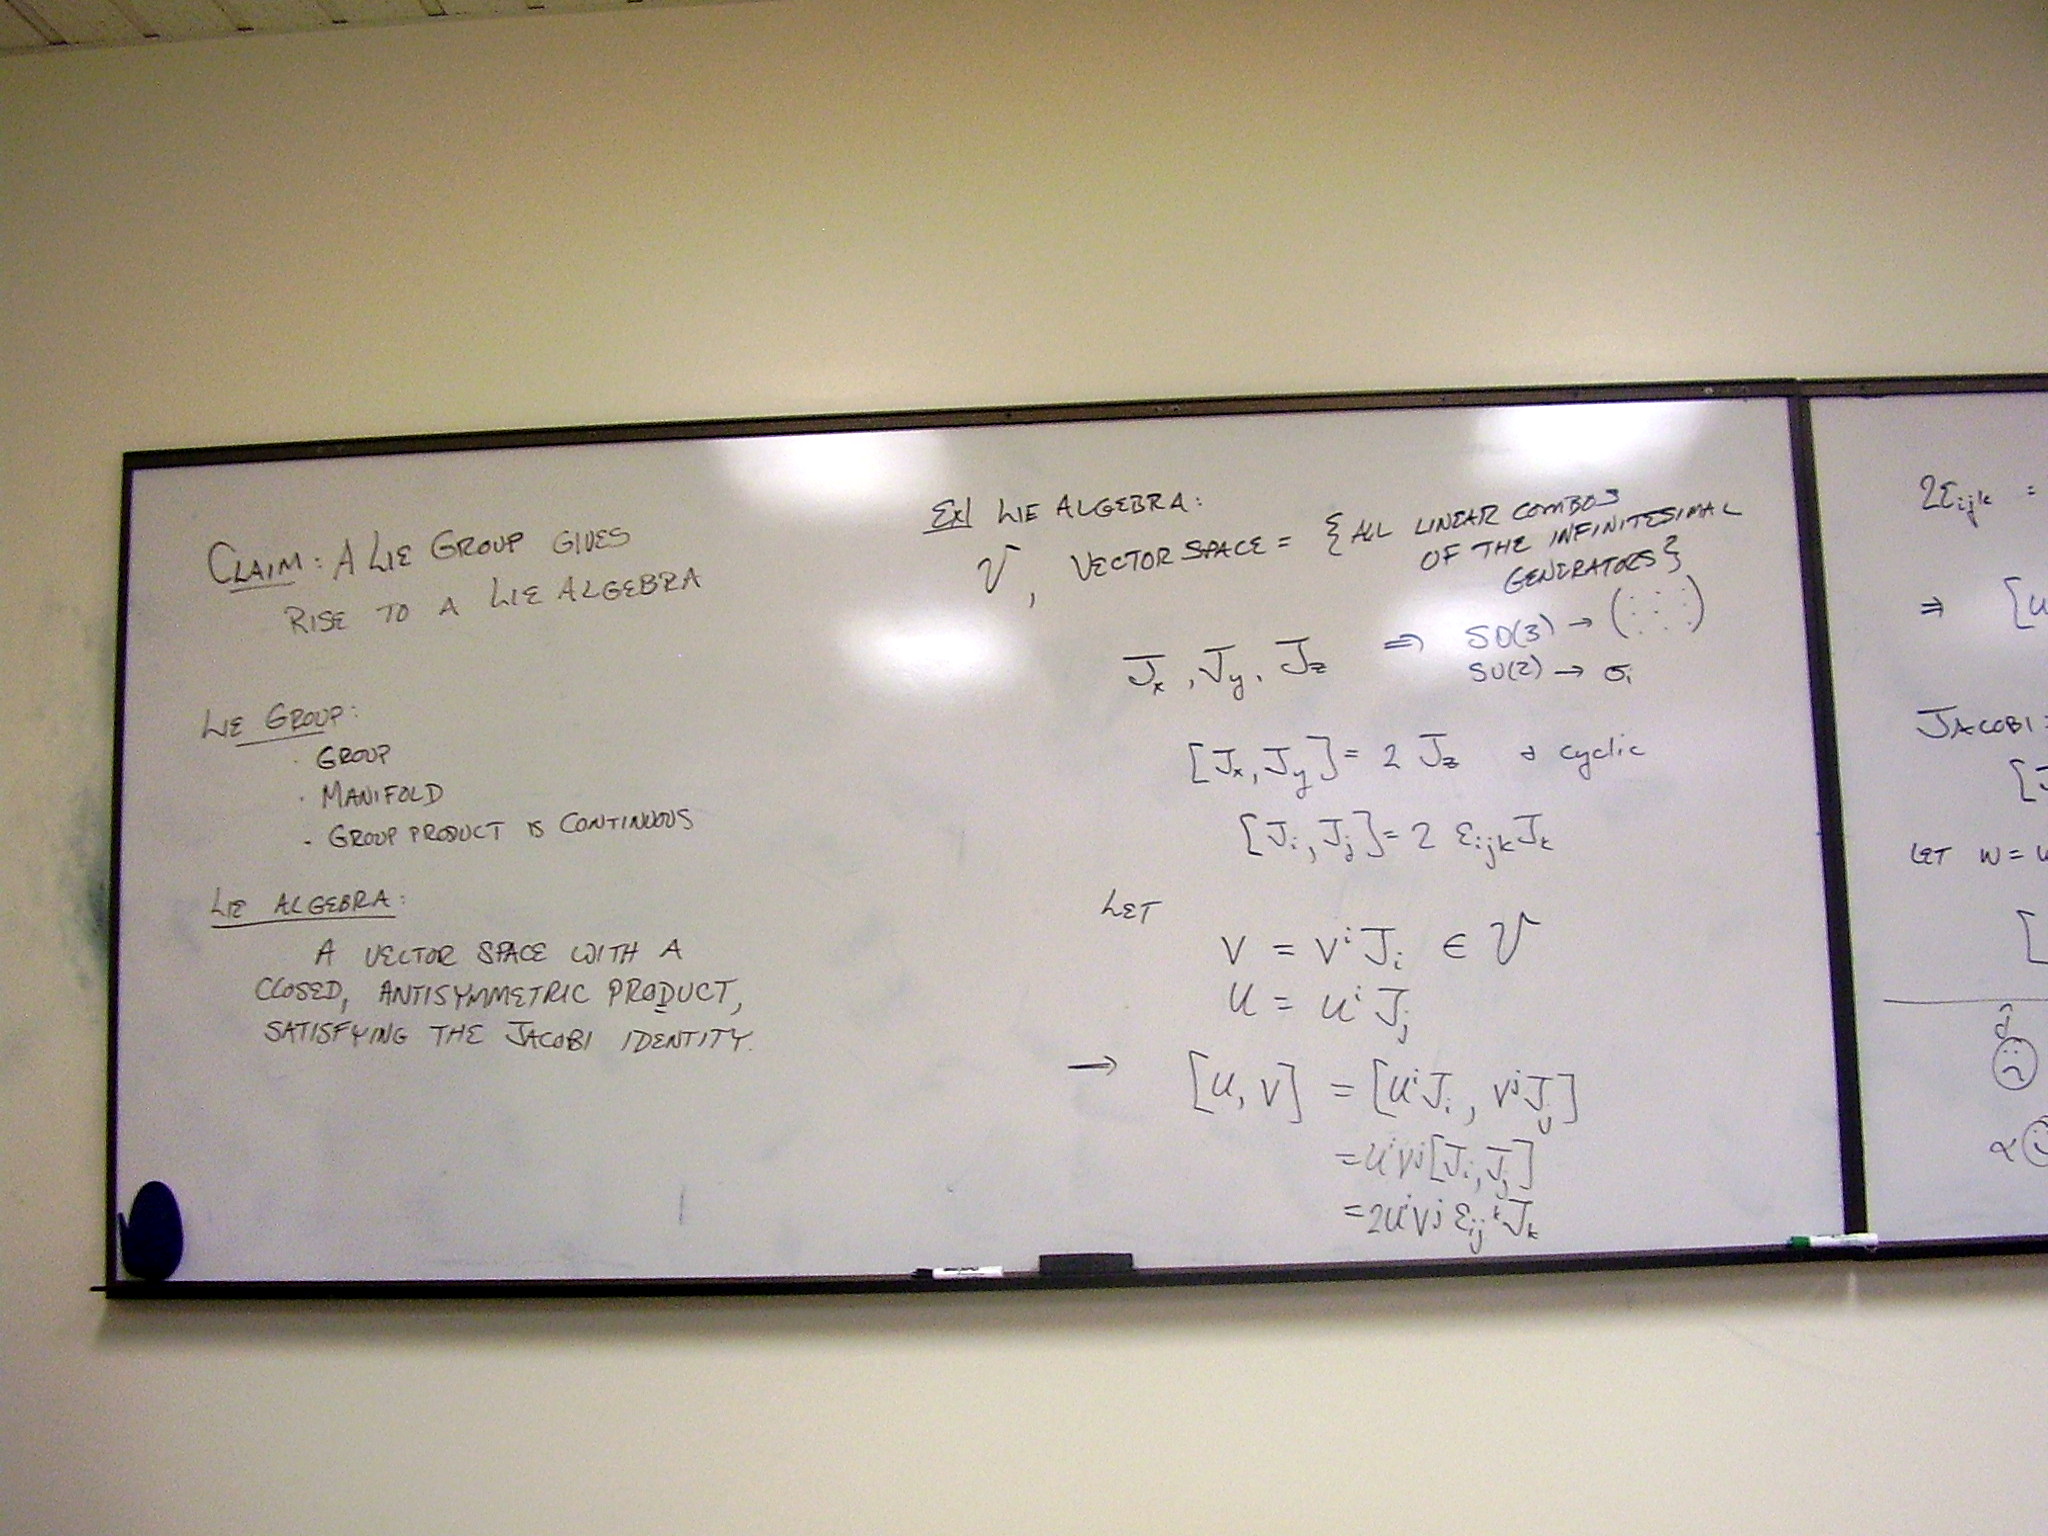 CLAIM: A LIE GROUP GIVES
RISE TO A LIE ALGEBRA
LIE GROUP:
· GROUP
· MANIFOLD
· GROUP PRODUCT IS CONTINUOUS
LIE ALGEBRA:
A VECTOR SPACE WITH A
CLOSED, ANTISYMMETRIC PRODUCT,
SATISFYING THE JACOBI IDENTITY.
EX| LIE ALGEBRA:
V, VECTOR SPACE = {ALL LINEAR COMBOS
OF THE INFINITESIMAL
GENERATORS}
J_x, J_y, J_z ⇒ SO(3) → (⋮⋮⋮)
SU(2) → σ_i
[J_x, J_y] = 2 J_z & cyclic
[J_i, J_j] = 2 ε_ijk J_k
LET
V = V^i J_i ∈ V
U = U^i J_j
→ [U, V] = [U^i J_i, V^j J_j]
= U^i V^j [J_i, J_j]
= 2U^i V^j ε_ij^k J_k
2ε_ijk =
⇒ [U
JACOBI:
[J
LET W =
[